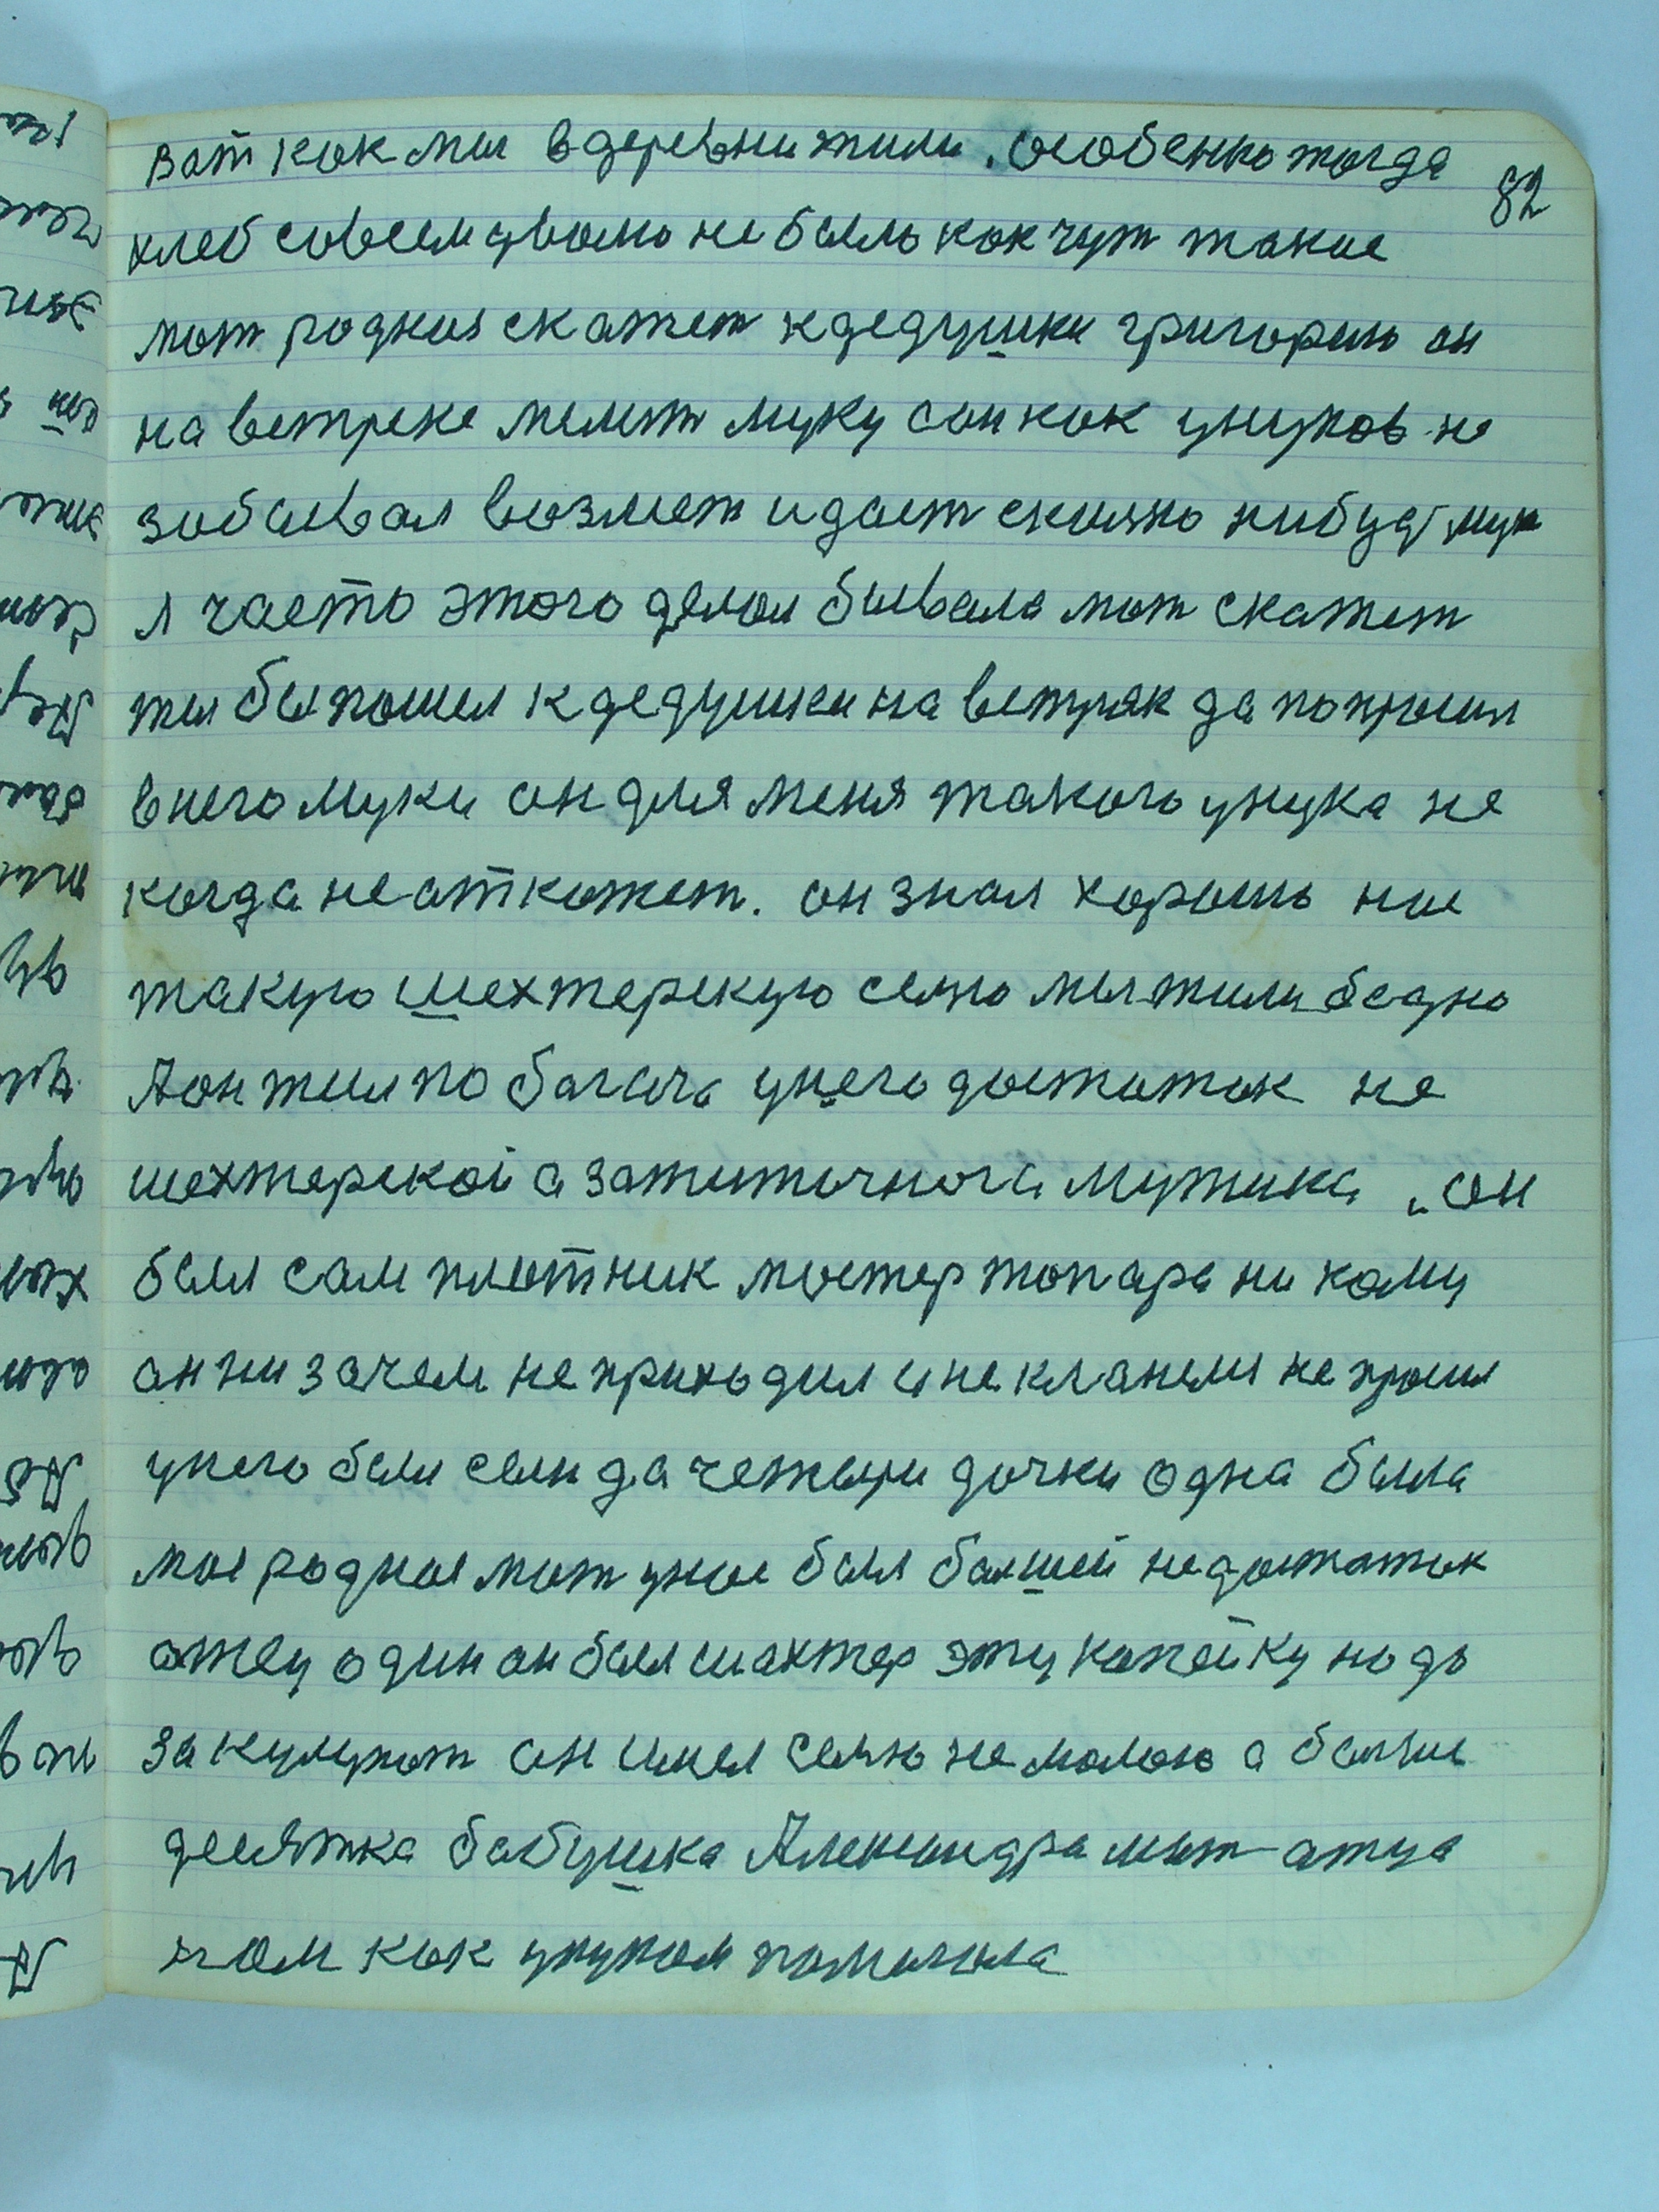 82
Вот как мы в деревни жили. особенно тогда
хлеб совсем у вомо не было как чут такие
мат родния скажет к дедушки григорию он
на ветреке мелит муку сам как унуков не
забывал возмет и дает скилко нибуд мук
я часто этого делол бывало мат скажет
ты бы пошел к дедушки на ветряк да попросил
в него муки он для меня такого унука не
когда не аткажет. он знал хорошо нас
такую шехтерскую семю мы жили бедно
А он жил по багачи у него достаток не
шехтерской а зажиточнога мужика. он
был сам плотник мастер топара ни кому
он ни зачем не приходил и не кланелся не просил
у него был сын да четыри дочки одна была
моя родная мат у нас был балшей недостаток
атец один он был шахтер эту капейку надо
за кулупат он имел семю не малою а болше
десятка бабушка Александра мат атца
нам как унукам памагала